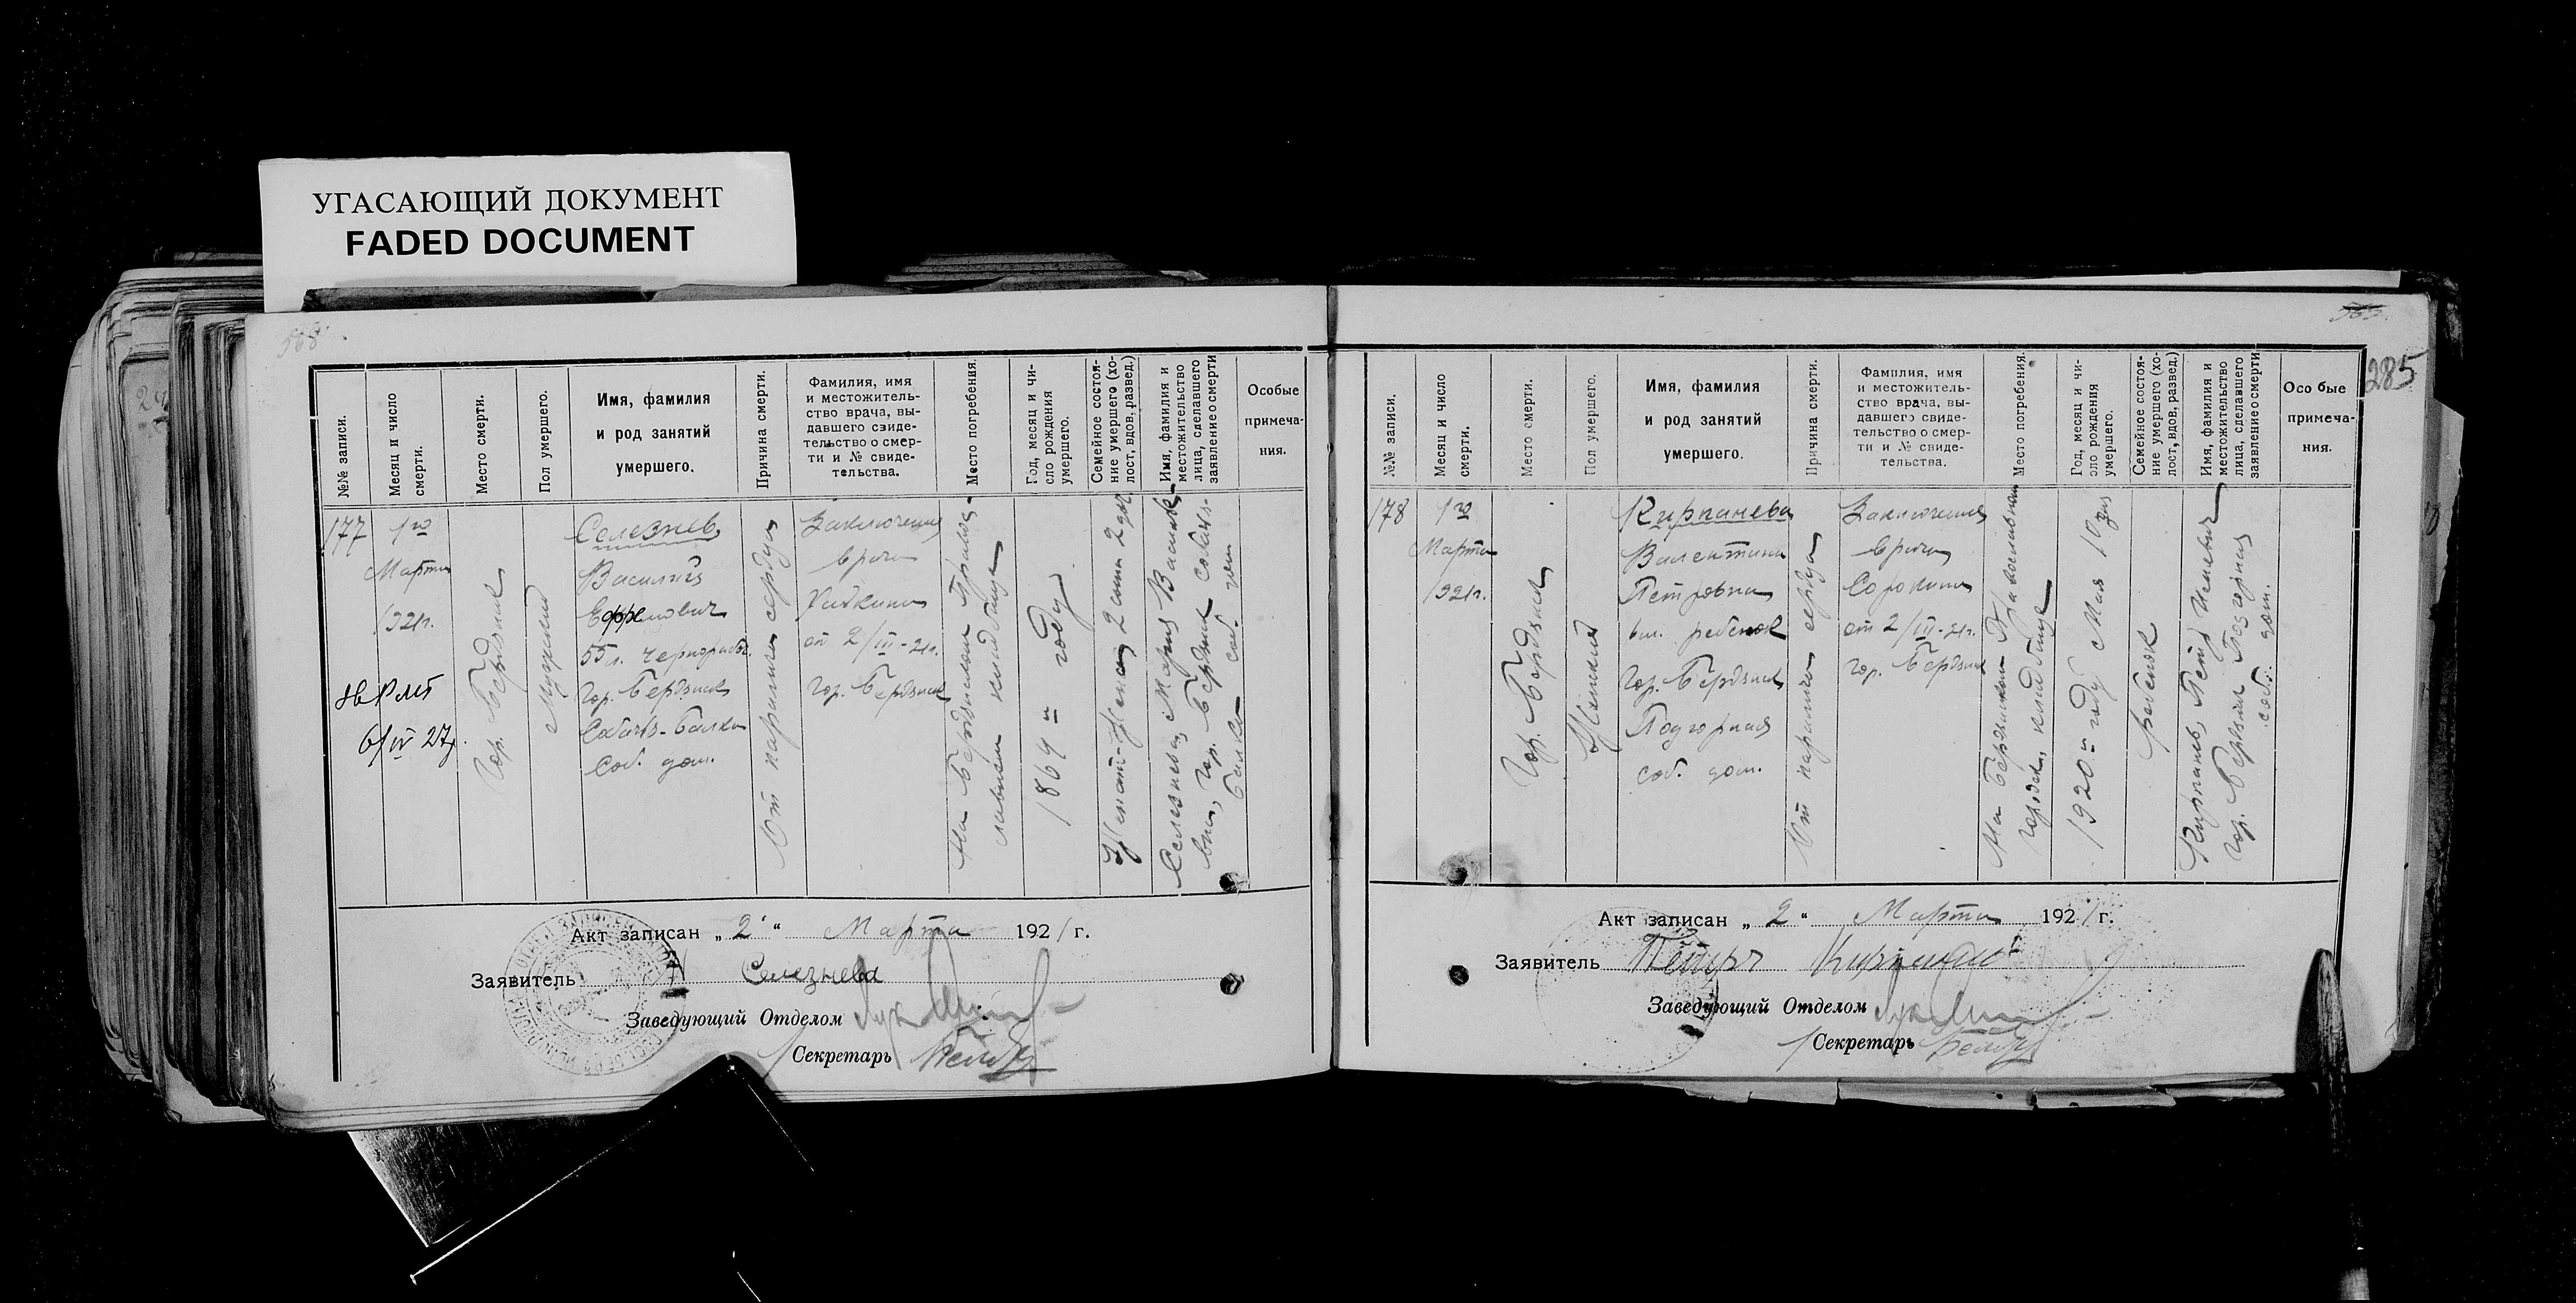 УГАСАЮЩИЙ ДОКУМЕНТ
FADED DOCUMENT
568
№№ записи.
Месяц и число
смерти.
Место смерти.
Пол умершего.
Имя, фамилия
и род занятий
умершего.
Причина смерти.
Фамилия, имя
и местожитель-
ство врача, вы-
давшего свиде-
тельство о смер-
ти и № свиде-
тельства.
Место погребения.
Год, месяц и чи-
сло рождения
умершего.
Семейное состоя-
ние умершего (хо-
лост, вдов, развед.)
Имя, фамилия и
местожительство
лица, сделавшего
заявление о смерти
Особые
примеча-
ния.
177
1го
Марта
1921г.
6/IV 27г.
Гор. Бердянск
Мужской
Селезнев
Василий
Ефремович
55 л. чернорабоч.
Гор. Бердянск
Собачь-Балка
Соб. дом.
От паралича сердца
Заключение
врача
от 2/III-21г.
Гор. Бердянск
На Бердянском Право-
славном кладбище
1864 м году
Женат
Селезнева, Мария Василь-
вна, гор. Бердянск Собачь-
балка соб. дом
Акт записан „ 2 “ Марта 1921 г.
Заявитель Селезнева
Заведующий Отделом
Секретарь
285
№№ записи.
Месяц и число
смерти.
Место смерти.
Пол умершего.
Имя, фамилия
и род занятий
умершего.
Причина смерти.
Фамилия, имя
и местожитель-
ство врача, вы-
давшего свиде-
тельство о смер-
ти и № свиде-
тельства.
Место погребения.
Год, месяц и чи-
сло рождения
умершего.
Семейное состоя-
ние умершего (хо-
лост, вдов, развед.)
Имя, фамилия и
местожительство
лица, сделавшего
заявление о смерти
Осо бые
примеча-
ния.
178
1го
Марта
1921г.
Гор. Бердянск
Женский
Кирпанева
Валентина
Петровна
ребенок
Гор. Бердянск
Подгорная
соб. дом.
От паралича сердца
Заключение
врача
Сорокина
от 2/III-21г.
гор. Бердянск
На Бердянском Православном
городск. кладбище
1920 м году Мая 10 дня
ребенок
Кирпань, Петр
гор. Бердянск Подгорная
соб. дом.
Акт записан „ 2 “ Марта 1921 г.
Заявитель Петръ
Заведующий Отделом
Секретарь